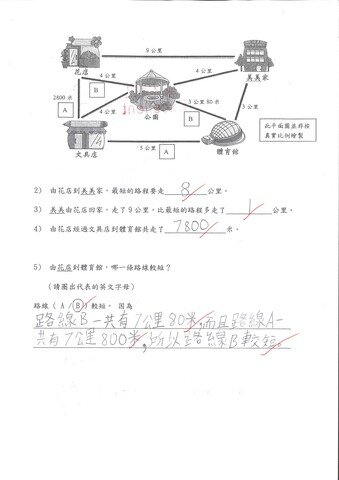 9 公里
花店
美美家
4 公里
4 公里
B
2800 米
B
A
4 公里
公園
3 公里 80 米
文具店
體育館
5 公里
A
此平面圖並非按
真實比例繪製
2) 由花店到美美家，最短的路程要走 8 公里。
3) 美美由花店回家，走了 9 公里，比最短的路程多走了 1 公里。
4) 由花店經過文具店到體育館共走了 7800 米。
5) 由花店到體育館，哪一條路線較短？
(請圈出代表的英文字母)
路線 ( A / B ) 較短，因為
路線B一共有7公里80米,而且路線A一
共有7公里800米,所以路線B較短。